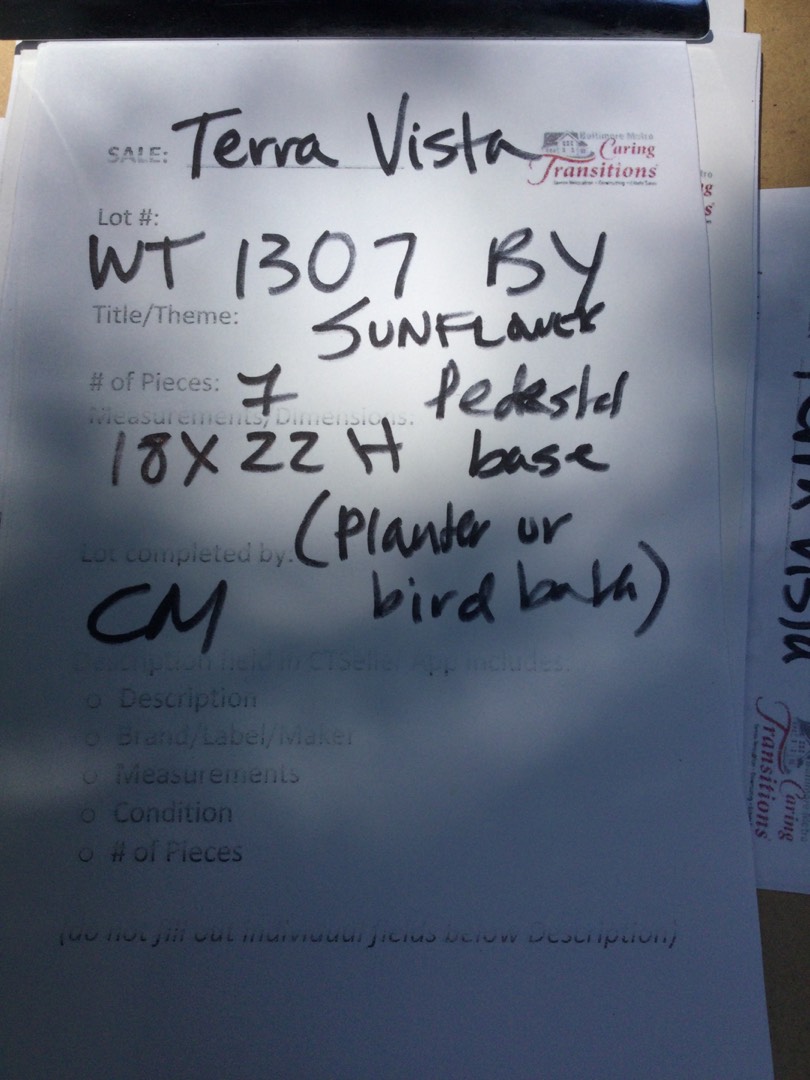 SALE: Terra Vista
Baltimore Metro
Caring
Transitions
Lot #:
WT 1307 BY
Title/Theme: SUNFLOWER
# of Pieces: 7 Pedestal
Measurements/Dimensions:
18 X 22 H base
(planter or
Lot completed by:
CM bird bath)
Description field in CTSeller App includes:
o Description
o Brand/Label/Maker
o Measurements
o Condition
o # of Pieces
(do not fill out individual fields below Description)
Vista
Caring
Transitions